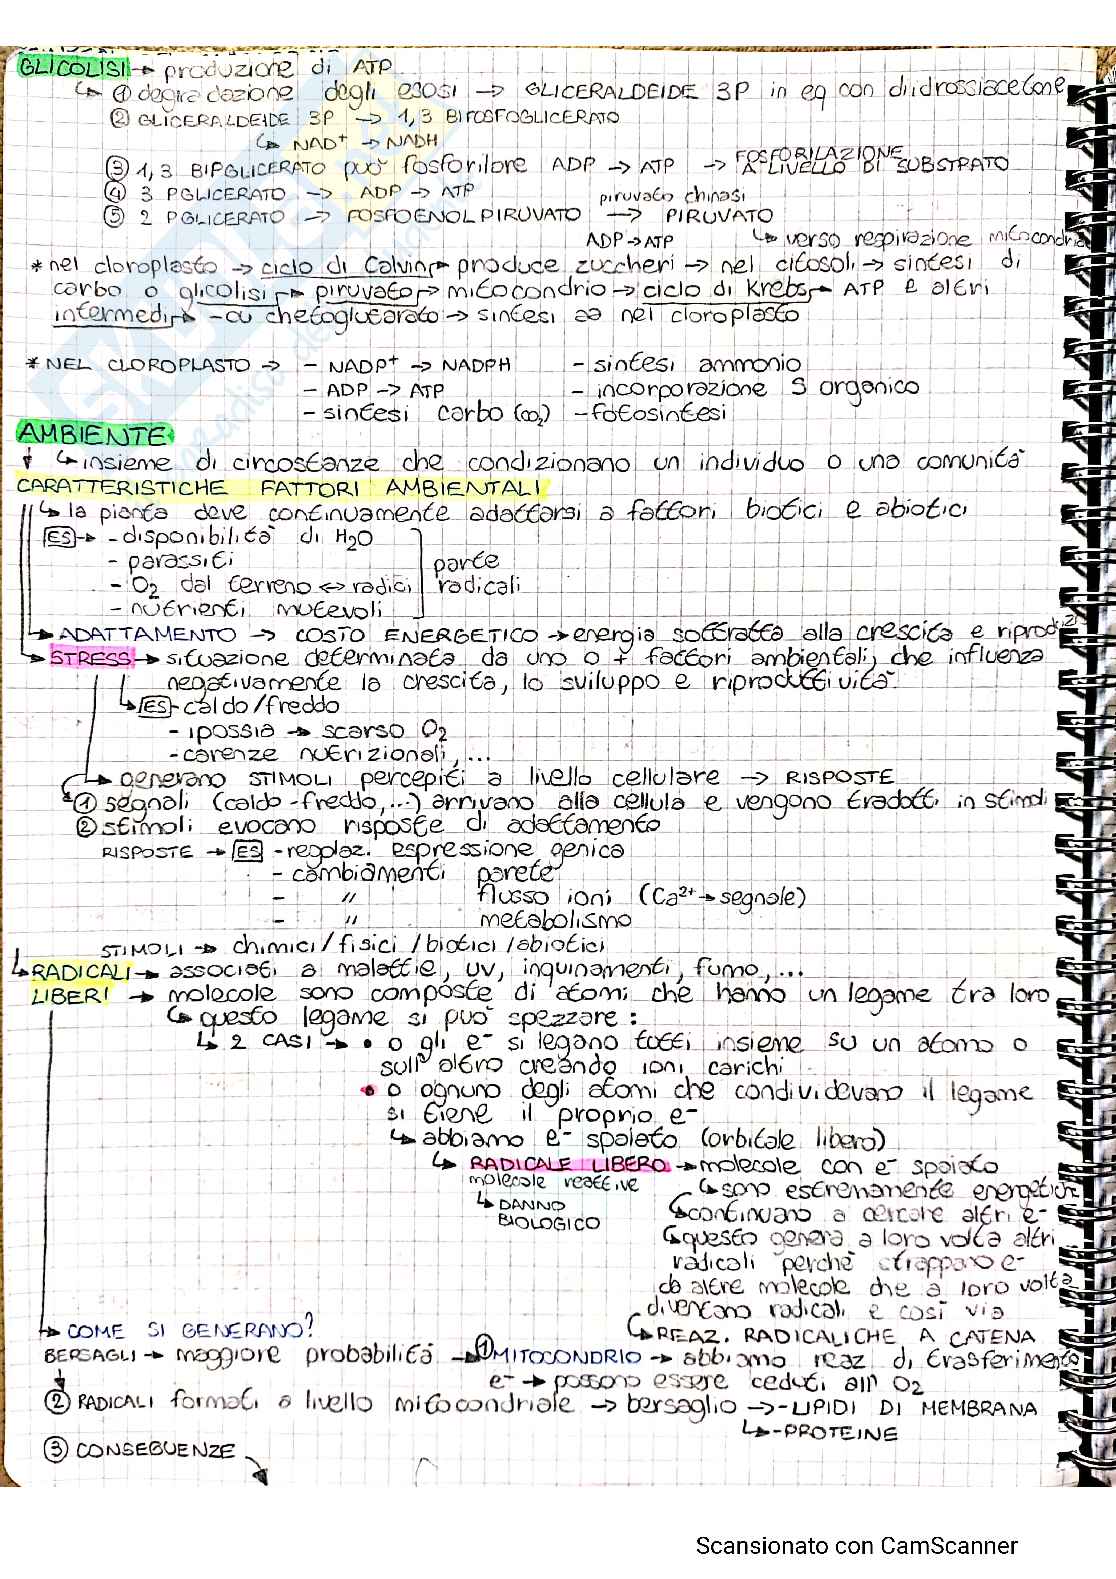 GLICOLISI → produzione di ATP
↳ ① degradazione degli esosi → GLICERALDEIDE 3P in eq con diidrossiacetone
② GLICERALDEIDE 3P → 1,3 BIFOSFOGLICERATO
↳ NAD⁺ → NADH
③ 1,3 BIPGLICERATO può fosforilare ADP → ATP → FOSFORILAZIONE A LIVELLO DI SUBSTRATO
④ 3 PGLICERATO → ADP → ATP
piruvato chinasi
⑤ 2 PGLICERATO → FOSFOENOLPIRUVATO → PIRUVATO
ADP → ATP ↳ verso respirazione mitocondria
* nel cloroplasto → ciclo di Calvin → produce zuccheri → nel citosoli → sintesi di
carbo o glicolisi → piruvato → mitocondrio → ciclo di Krebs → ATP e altri
intermedi → - α chetoglutarato → sintesi aa nel cloroplasto
* NEL CLOROPLASTO → - NADP⁺ → NADPH - sintesi ammonio
- ADP → ATP - incorporazione S organico
- sintesi carbo (CO₂) - fotosintesi
AMBIENTE
↳ insieme di circostanze che condizionano un individuo o una comunità
CARATTERISTICHE FATTORI AMBIENTALI
↳ la pianta deve continuamente adattarsi a fattori biotici e abiotici
ES → - disponibilità di H₂O
- parassiti parte
- O₂ dal terreno ↔ radici radicali
- nutrienti mutevoli
↳ ADATTAMENTO → COSTO ENERGETICO → energia sottratta alla crescita e riproduzi
↳ STRESS → situazione determinata da uno o + fattori ambientali, che influenza
negativamente la crescita, lo sviluppo e riproduttività
↳ ES - caldo/freddo
- ipossia → scarso O₂
- carenze nutrizionali, ...
↳ generano STIMOLI percepiti a livello cellulare → RISPOSTE
① segnali (caldo-freddo, ...) arrivano alla cellula e vengono tradotti in stimoli
② stimoli evocano risposte di adattamento
RISPOSTE → ES - regolaz. espressione genica
- cambiamenti parete
- " flusso ioni (Ca²⁺ → segnale)
- " metabolismo
STIMOLI → chimici/fisici/biotici/abiotici
↳ RADICALI → associati a malattie, UV, inquinamenti, fumo, ...
LIBERI → molecole sono composte di atomi che hanno un legame tra loro
↳ questo legame si può spezzare:
↳ 2 CASI → • o gli e⁻ si legano tutti insieme su un atomo o
sull'altro creando ioni carichi
• o ognuno degli atomi che condividevano il legame
si tiene il proprio e⁻
↳ abbiamo e⁻ spaiato (orbitale libero)
↳ RADICALE LIBERO → molecole con e⁻ spaiato
molecole reattive ↳ sono estremamente energetich
↳ DANNO BIOLOGICO
↳ continuano a cercare altri e⁻
↳ questo genera a loro volta altri
radicali perché strappano e⁻
da altre molecole che a loro volta
diventano radicali e così via
↳ REAZ. RADICALICHE A CATENA
↳ COME SI GENERANO?
BERSAGLI → maggiore probabilità → ① MITOCONDRIO → abbiamo reaz di trasferimento
e⁻ → possono essere ceduti all'O₂
② RADICALI formati a livello mitocondriale → bersaglio → - LIPIDI DI MEMBRANA
↳ - PROTEINE
③ CONSEGUENZE
Scansionato con CamScanner